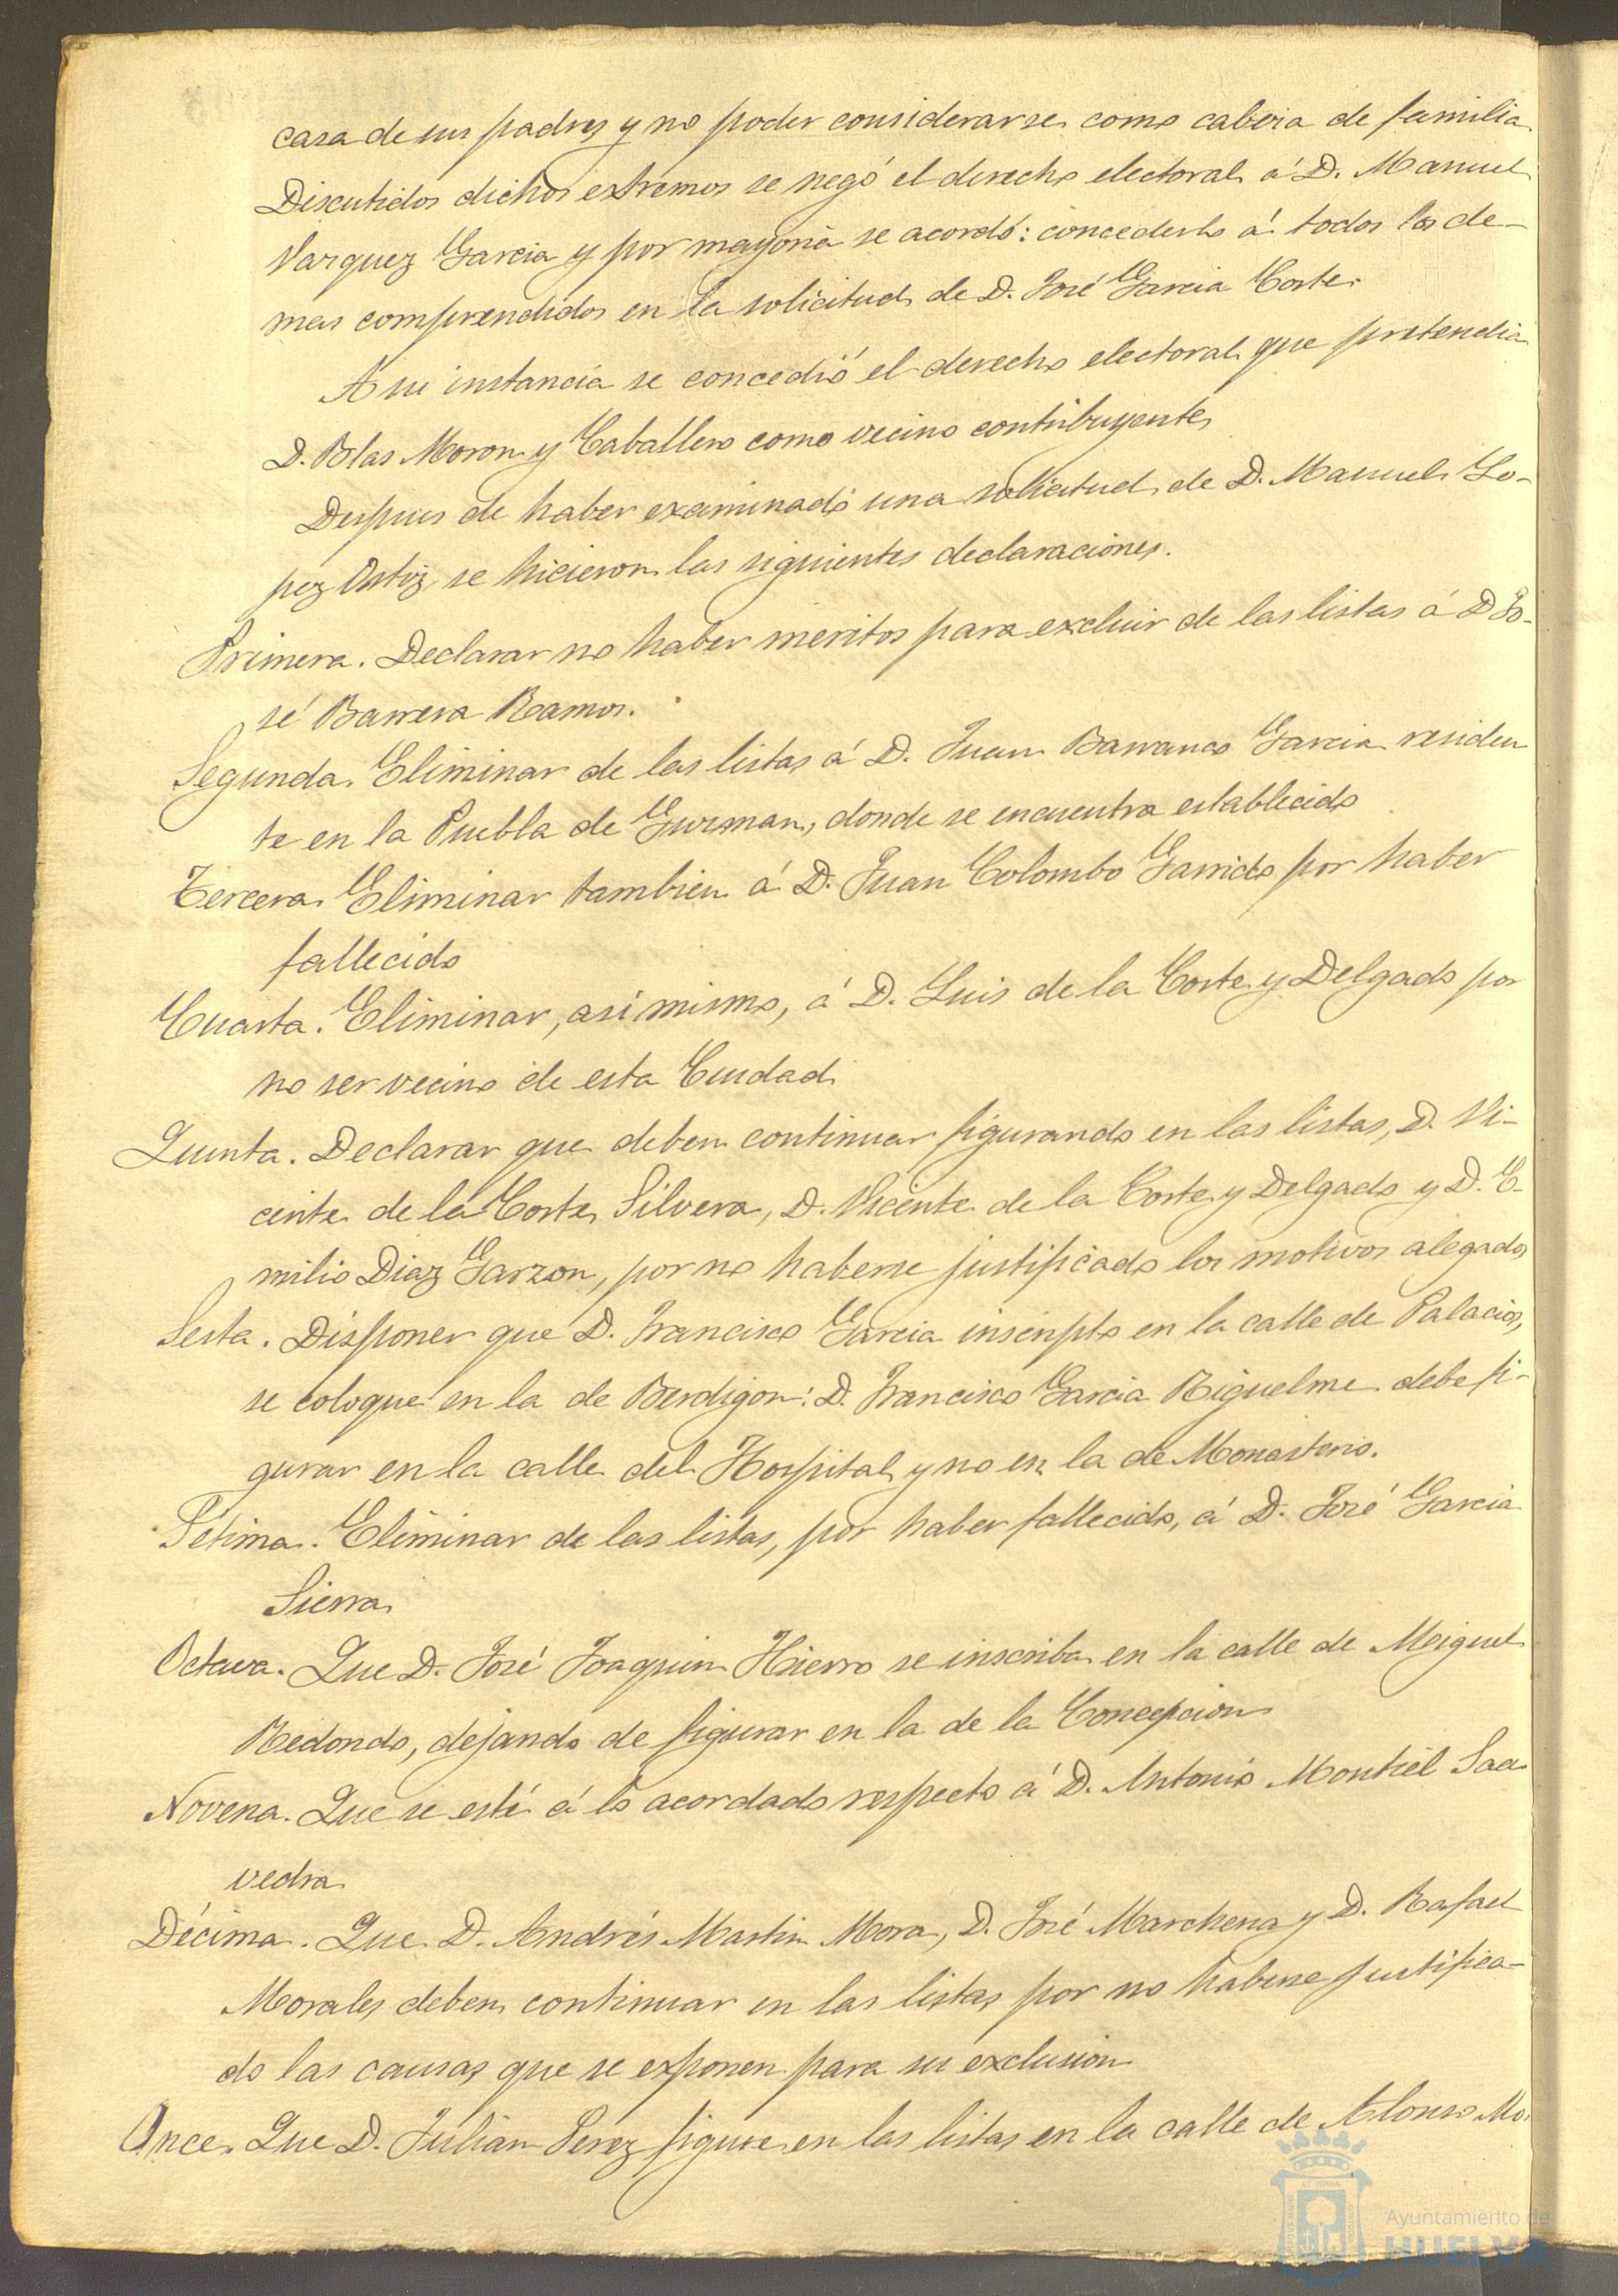 casa de sus padres y no poder considerarse como cabeza de familia
Discutidos dichos extremos se negó el derecho electoral á D. Manuel
Vazquez Garcia y por mayoria se acordó: concederlo á todos los de-
mas comprendidos en la solicitud de D. José Garcia Corte.
A su instancia se concedió el derecho electoral que pretendia
D. Blas Moron y Caballero como vecino contribuyente
Despues de haber examinado una solicitud de D. Manuel Lo-
pez Ortiz, se hicieron las siguientes declaraciones.
Primera. Declarar no haber meritos para excluir de las listas á D Jo-
sé Barrera Ramos.
Segunda. Eliminar de las listas á D. Juan Barranco Garcia residen
te en la Puebla de Guzman, donde se encuentra establecido
Tercera. Eliminar tambien á D. Juan Colombo Garrido por haber
fallecido
Cuarta. Eliminar, asi mismo, á D. Luis de la Corte y Delgado por
no ser vecino de esta Ciudad
Quinta. Declarar que deben continuar figurando en las listas, D. Vi-
cente de la Corte Silvera, D. Vicente de la Corte y Delgado y D. E-
milio Diaz Garzon, por no haberse justificado los motivos alegados
Sesta. Disponer que D. Francisco Garcia inscripto en la calle de Palacios,
se coloque en la de Berdigon: D. Francisco Garcia Riguelme debe fi-
gurar en la calle del Hospital y no en la de Monasterio.
Setima. Eliminar de las listas, por haber fallecido, á D. José Garcia
Sierra
Octava. Que D. José Joaquin Hierro se inscriba en la calle de Miguel
Redondo, dejando de figurar en la de la Concepcion
Novena. Que se esté á lo acordado respecto á D. Antonio Montiel Saa
vedra
Décima. Que D. Andrés Martin Mora, D. José Marchena y D. Rafael
Morales, deben continuar en las listas por no haberse justifica-
do las causas que se exponen para su exclusion
Once. Que D. Julian Perez figure en las listas en la calle de Alonso Mo
Ayuntamiento de
HUELVA